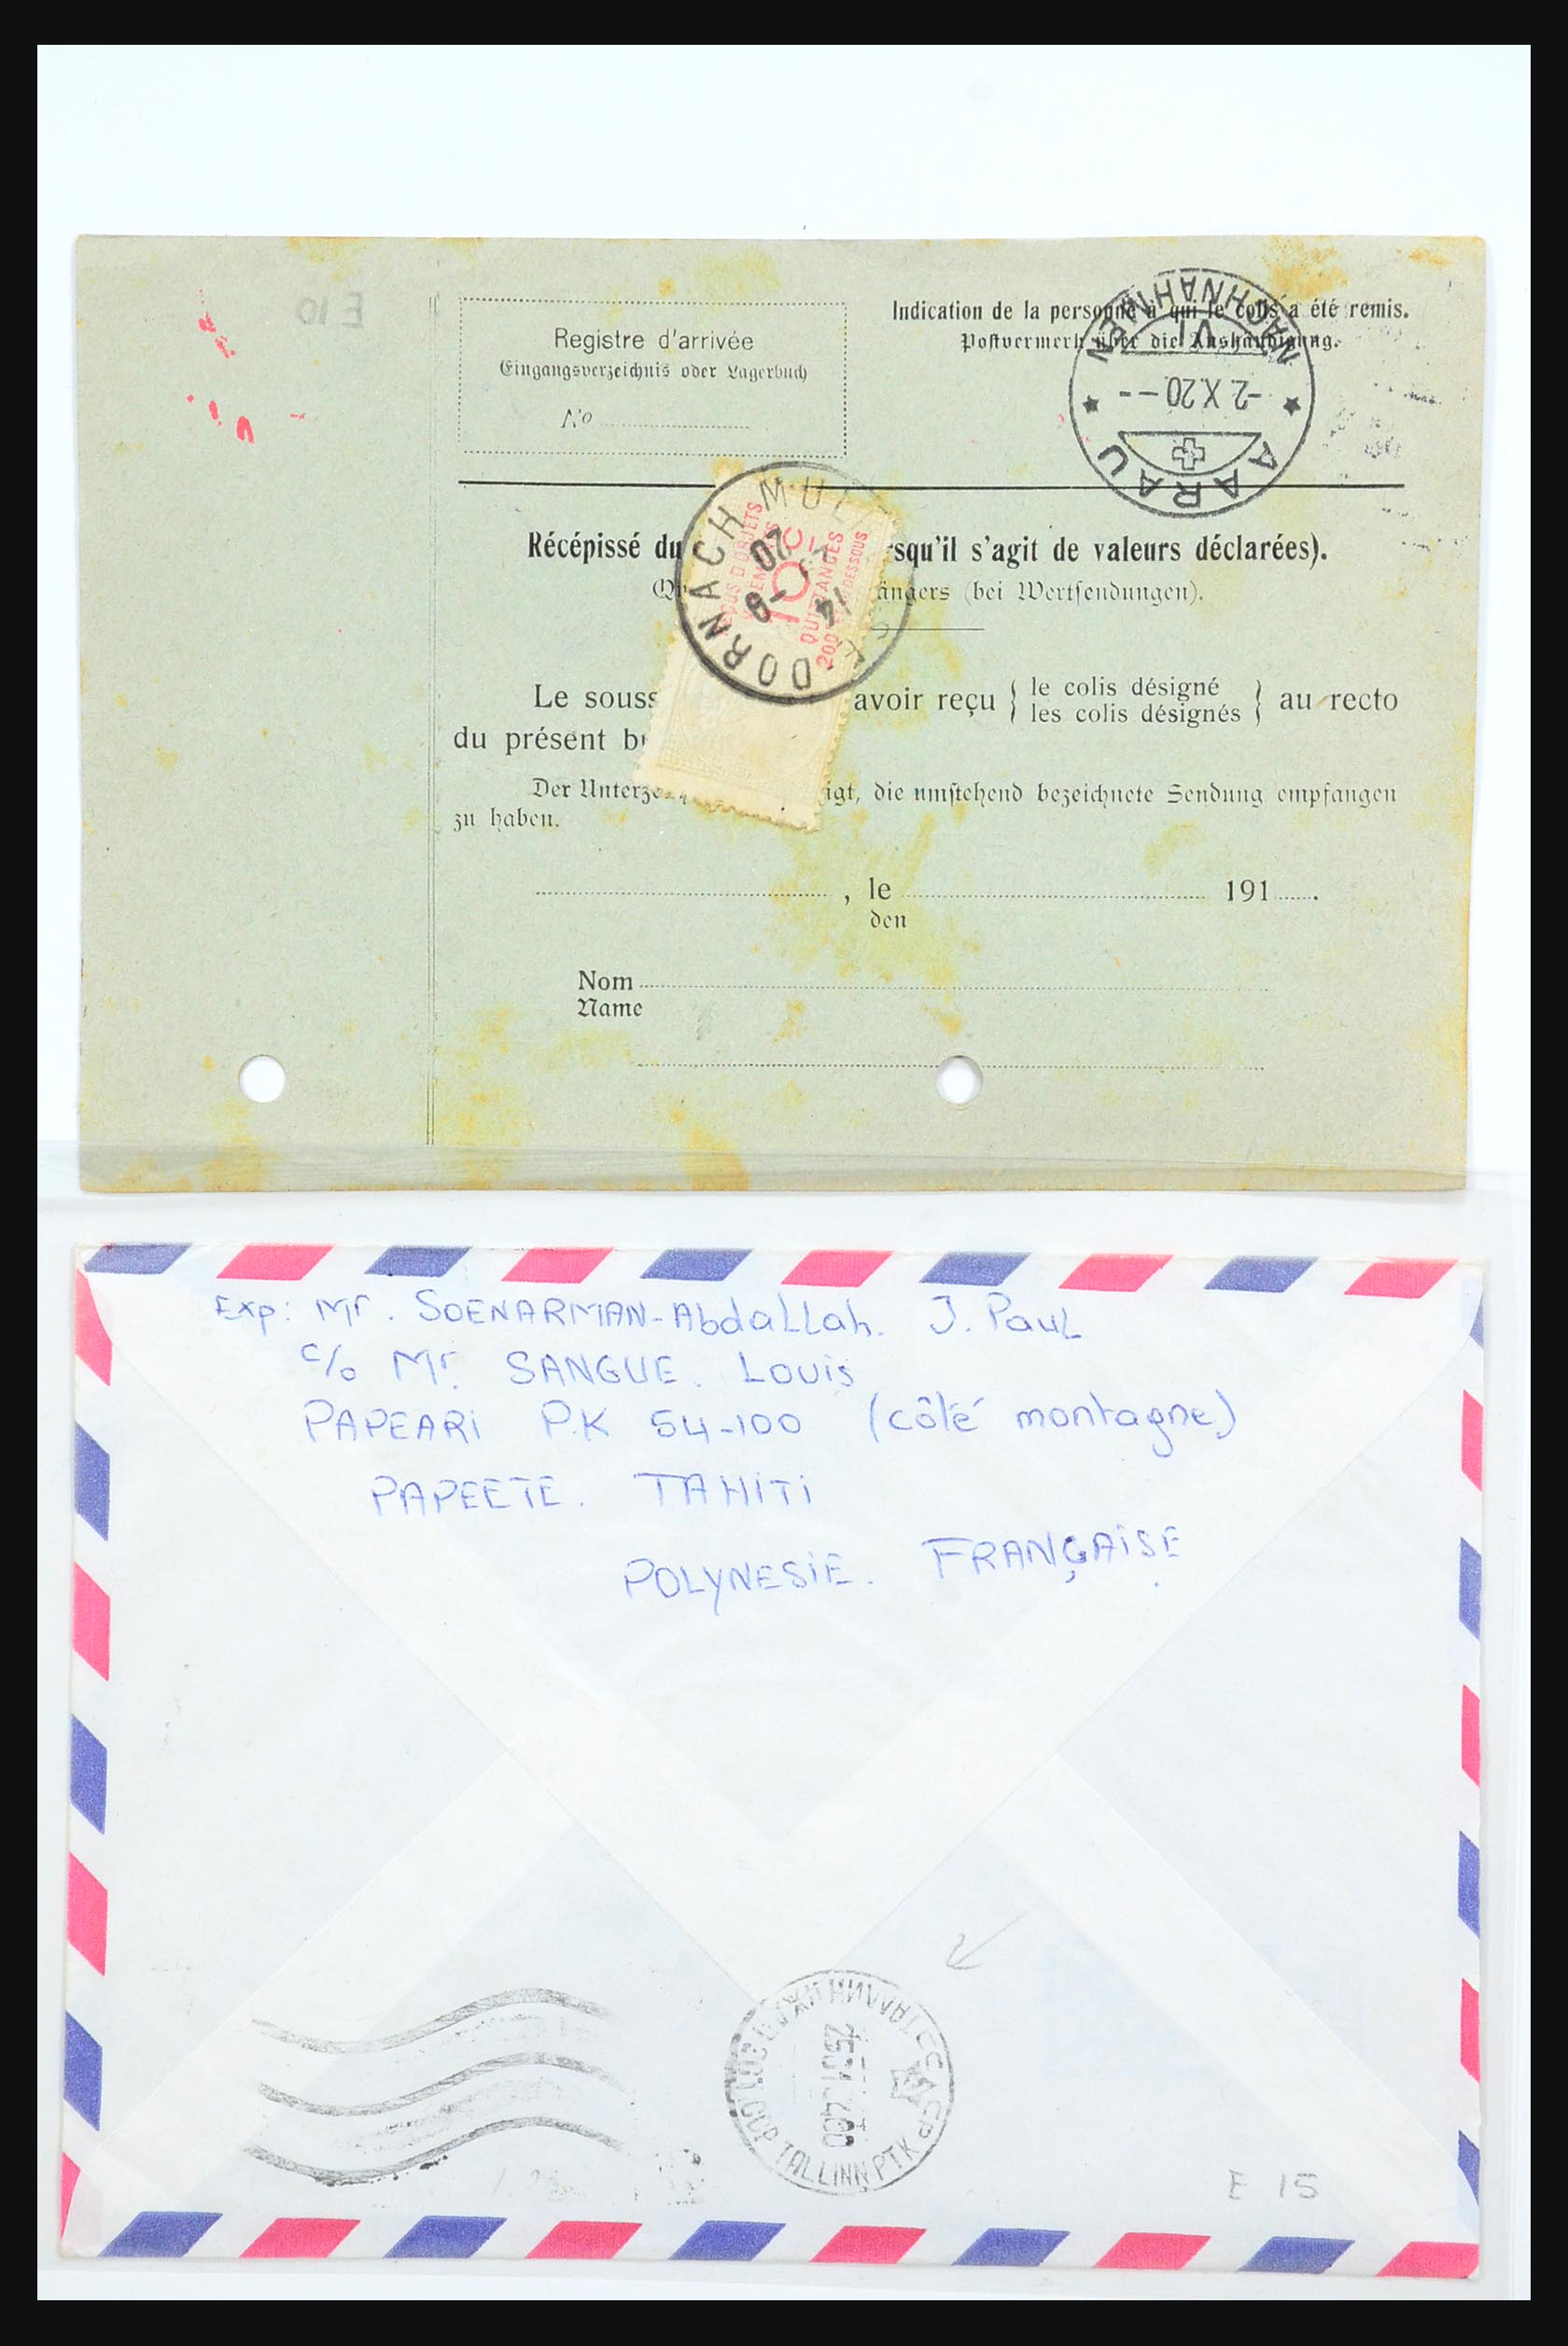 E 10
Registre d'arrivée
Eingangsverzeichnis oder Lagerbuch
No
Indication de la personne à qui le colis a été remis.
Postvermerk über die Aushändigung.
NACHNAHMEN
VI
-2.X.20--
AARAU
Récépissé du rsqu'il s'agit de valeurs déclarées).
ängers (bei Wertsendungen).
DORNACH MUL
20
14
10
QUITTANCES
Le souss avoir reçu { le colis désigné / les colis désignés } au recto
du présent b
Der Unterze igt, die umstehend bezeichnete Sendung empfangen
zu haben.
, le 191 .
den
Nom
Name
Exp: Mr. SOENARMAN-Abdallah. J. Paul
c/o Mr. SANGUE. Louis
PAPEARi P.K 54-100 (côté montagne)
PAPEETE. TAHITi
POLYNESIE. FRANÇAiSE
TALLINN PTK
E 15